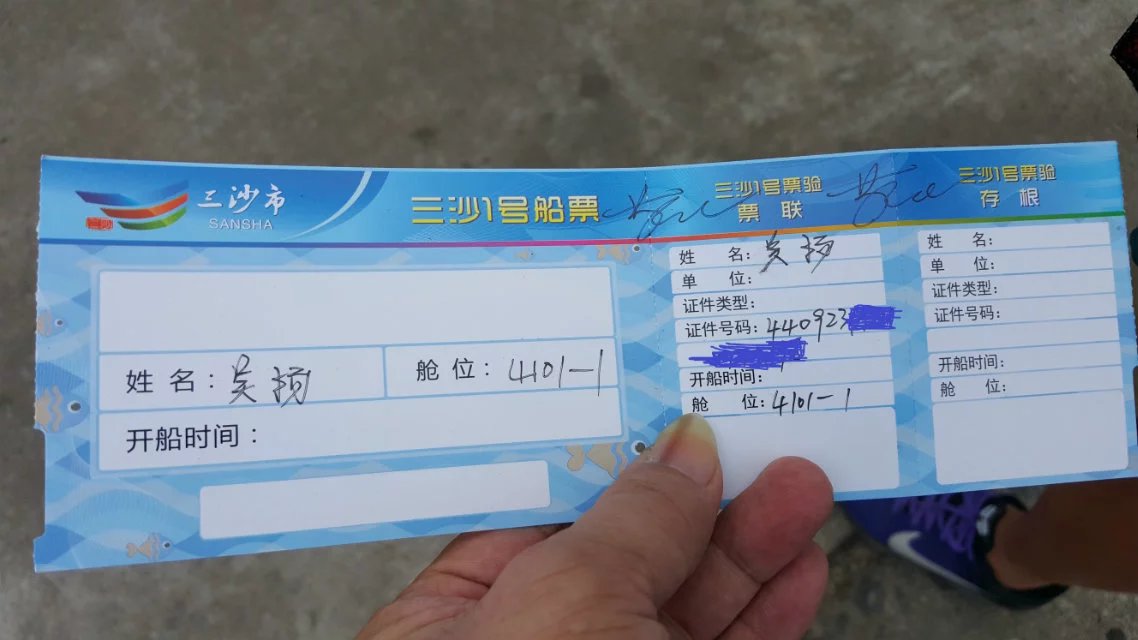 三沙市
SANSHA
三沙1号船票
姓名：吴扬
舱位：4101-1
开船时间：
三沙1号票验
票联
姓 名：吴扬
单 位：
证件类型：
证件号码：440923
开船时间：
舱 位：4101-1
三沙1号票验
存根
姓 名：
单 位：
证件类型：
证件号码：
开船时间：
舱 位：